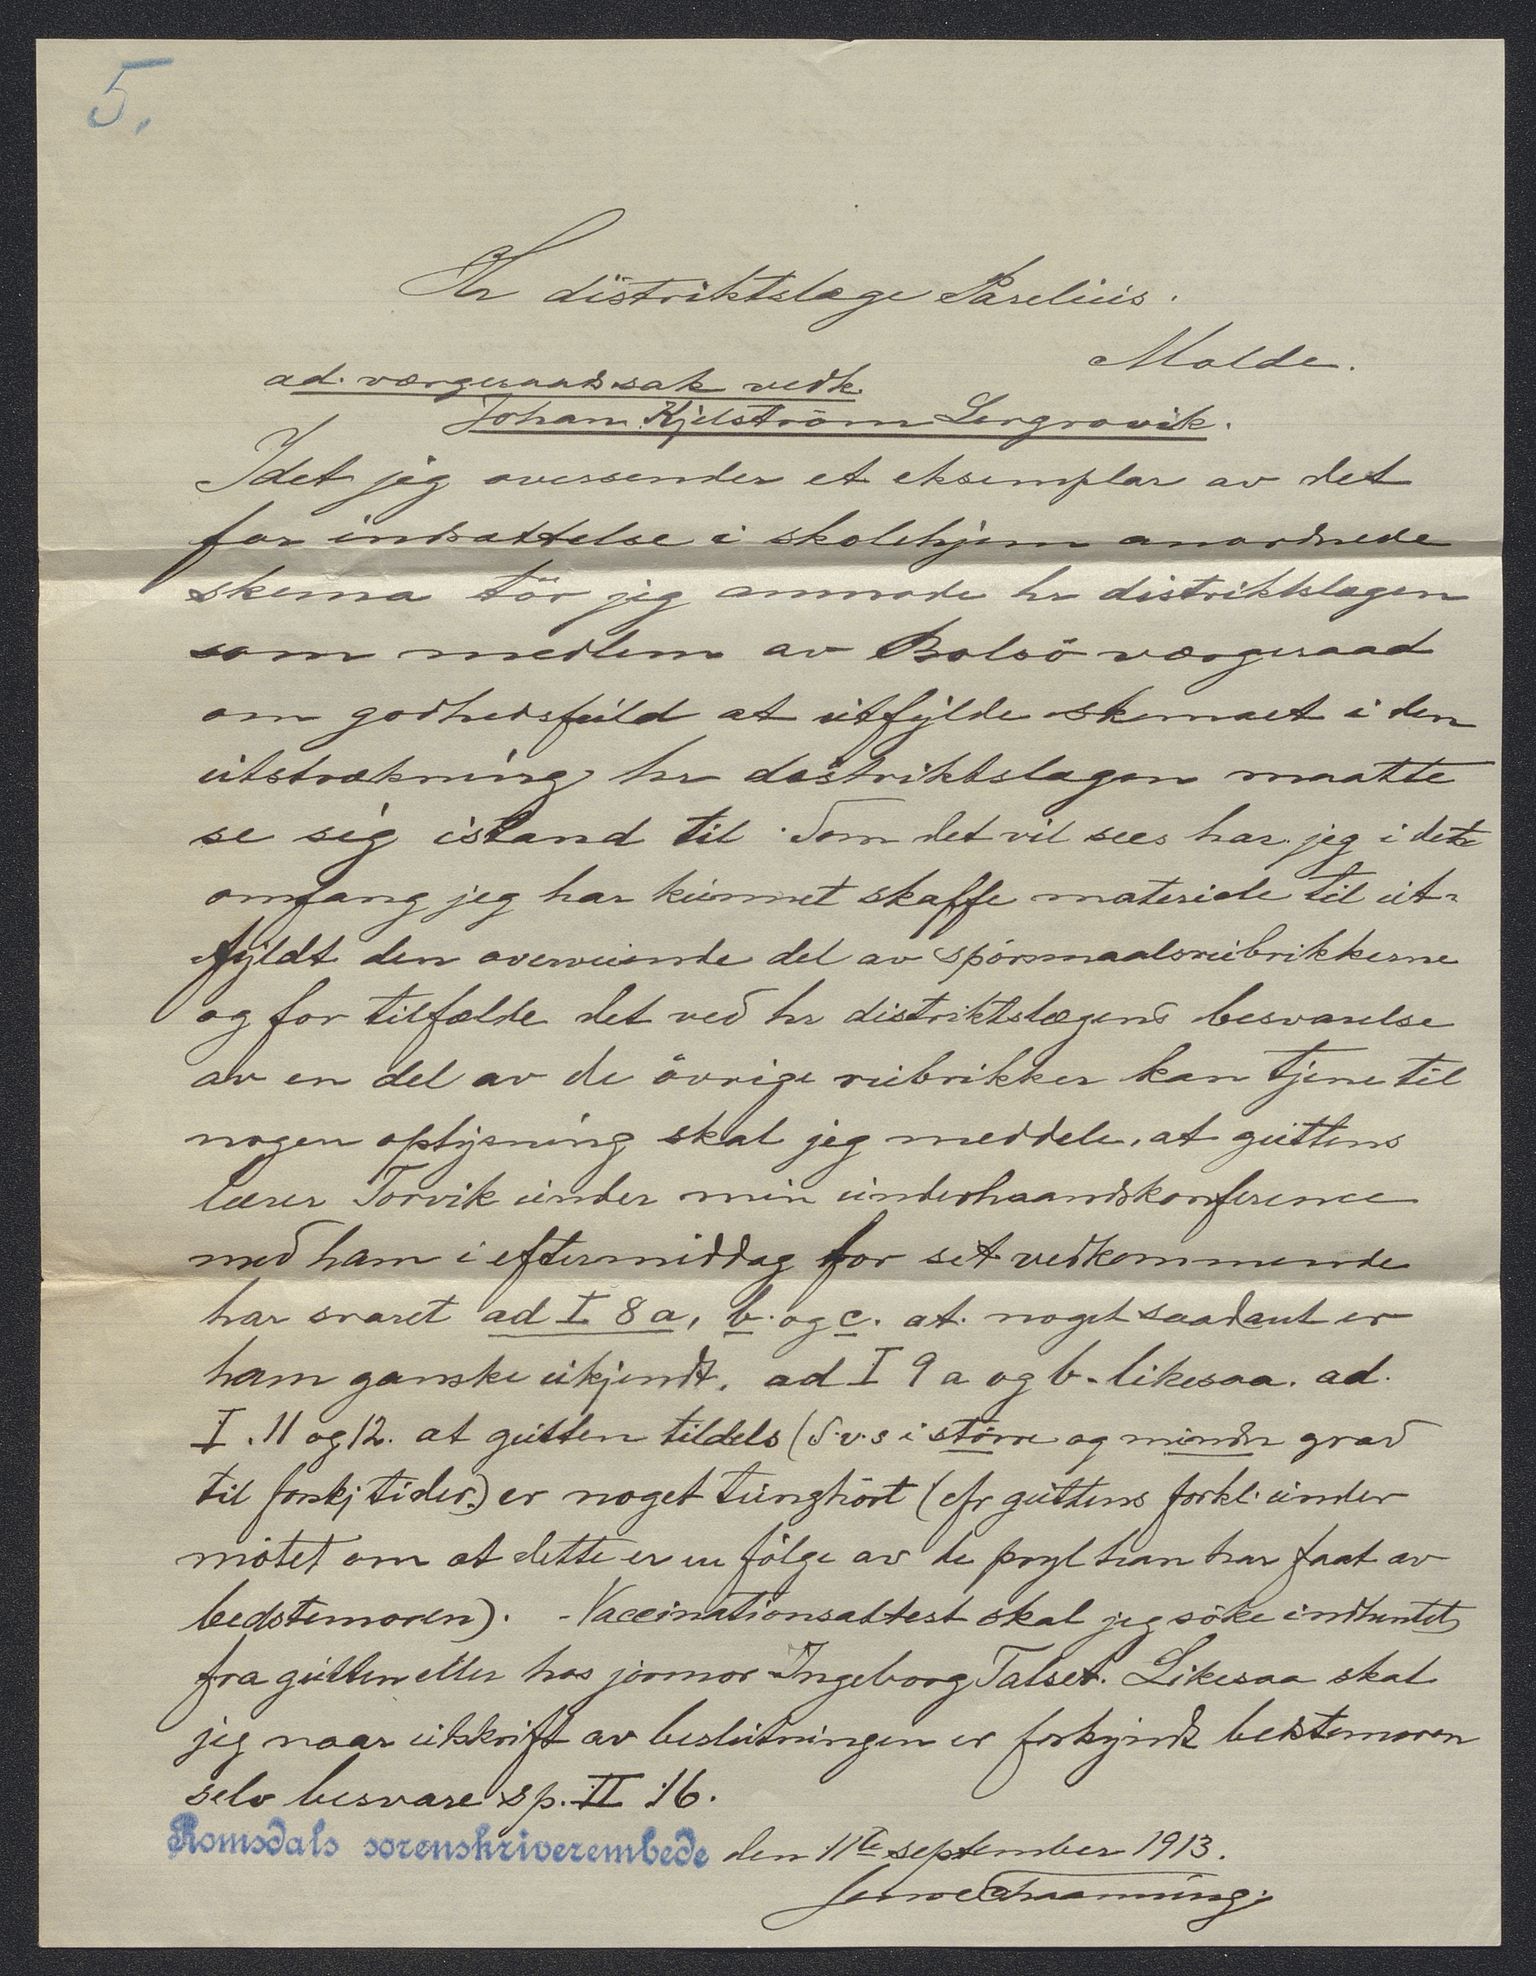 5.
Hr distriktslæge Parelius.
Molde.
ad. værgeraadssak vedk.
Johan Kjelström Lergrovik.
Idet jeg oversender et eksemplar av det
for indsættelse i skolehjem anordnede
skema tör jeg anmode hr distriktslægen
som medlem av Bolsö værgeraad
om godhedsfuld at utfylde skemaet i den
utstrækning hr distriktslægen maatte
se sig istand til. Som det vil sees har jeg i det
omfang jeg har kunnet skaffe materiale til ut-
fyldt den overveiende del av spörsmaalsrubrikkerne
og for tilfælde det ved hr distriktslægens besvarelse
av en del av de övrige rubrikker kan tjene til
nogen oplysning skal jeg meddele, at guttens
lærer Torvik under min underhaandskonference
med ham i eftermiddag for sit vedkommende
har svaret ad I 8 a, b. og c. at noget saadant er
ham ganske ukjendt. ad I 9 a og b. likesaa. ad.
I. 11 og 12. at gutten tildels (d.v.s i större og mindre grad
til forskj tider.) er noget tunghört (cfr guttens forkl. under
mötet om at dette er en fölge av de pryl han har faat av
bedstemoren). Vaccinationsattest skal jeg söke indhentet
fra gutten eller hos jormor Ingeborg Talset. Likesaa skal
jeg naar utskrift av beslutningen er forkyndt bedstemoren
selv besvare sp. II 16.
Romsdals sorenskriverembede den 11te september 1913.